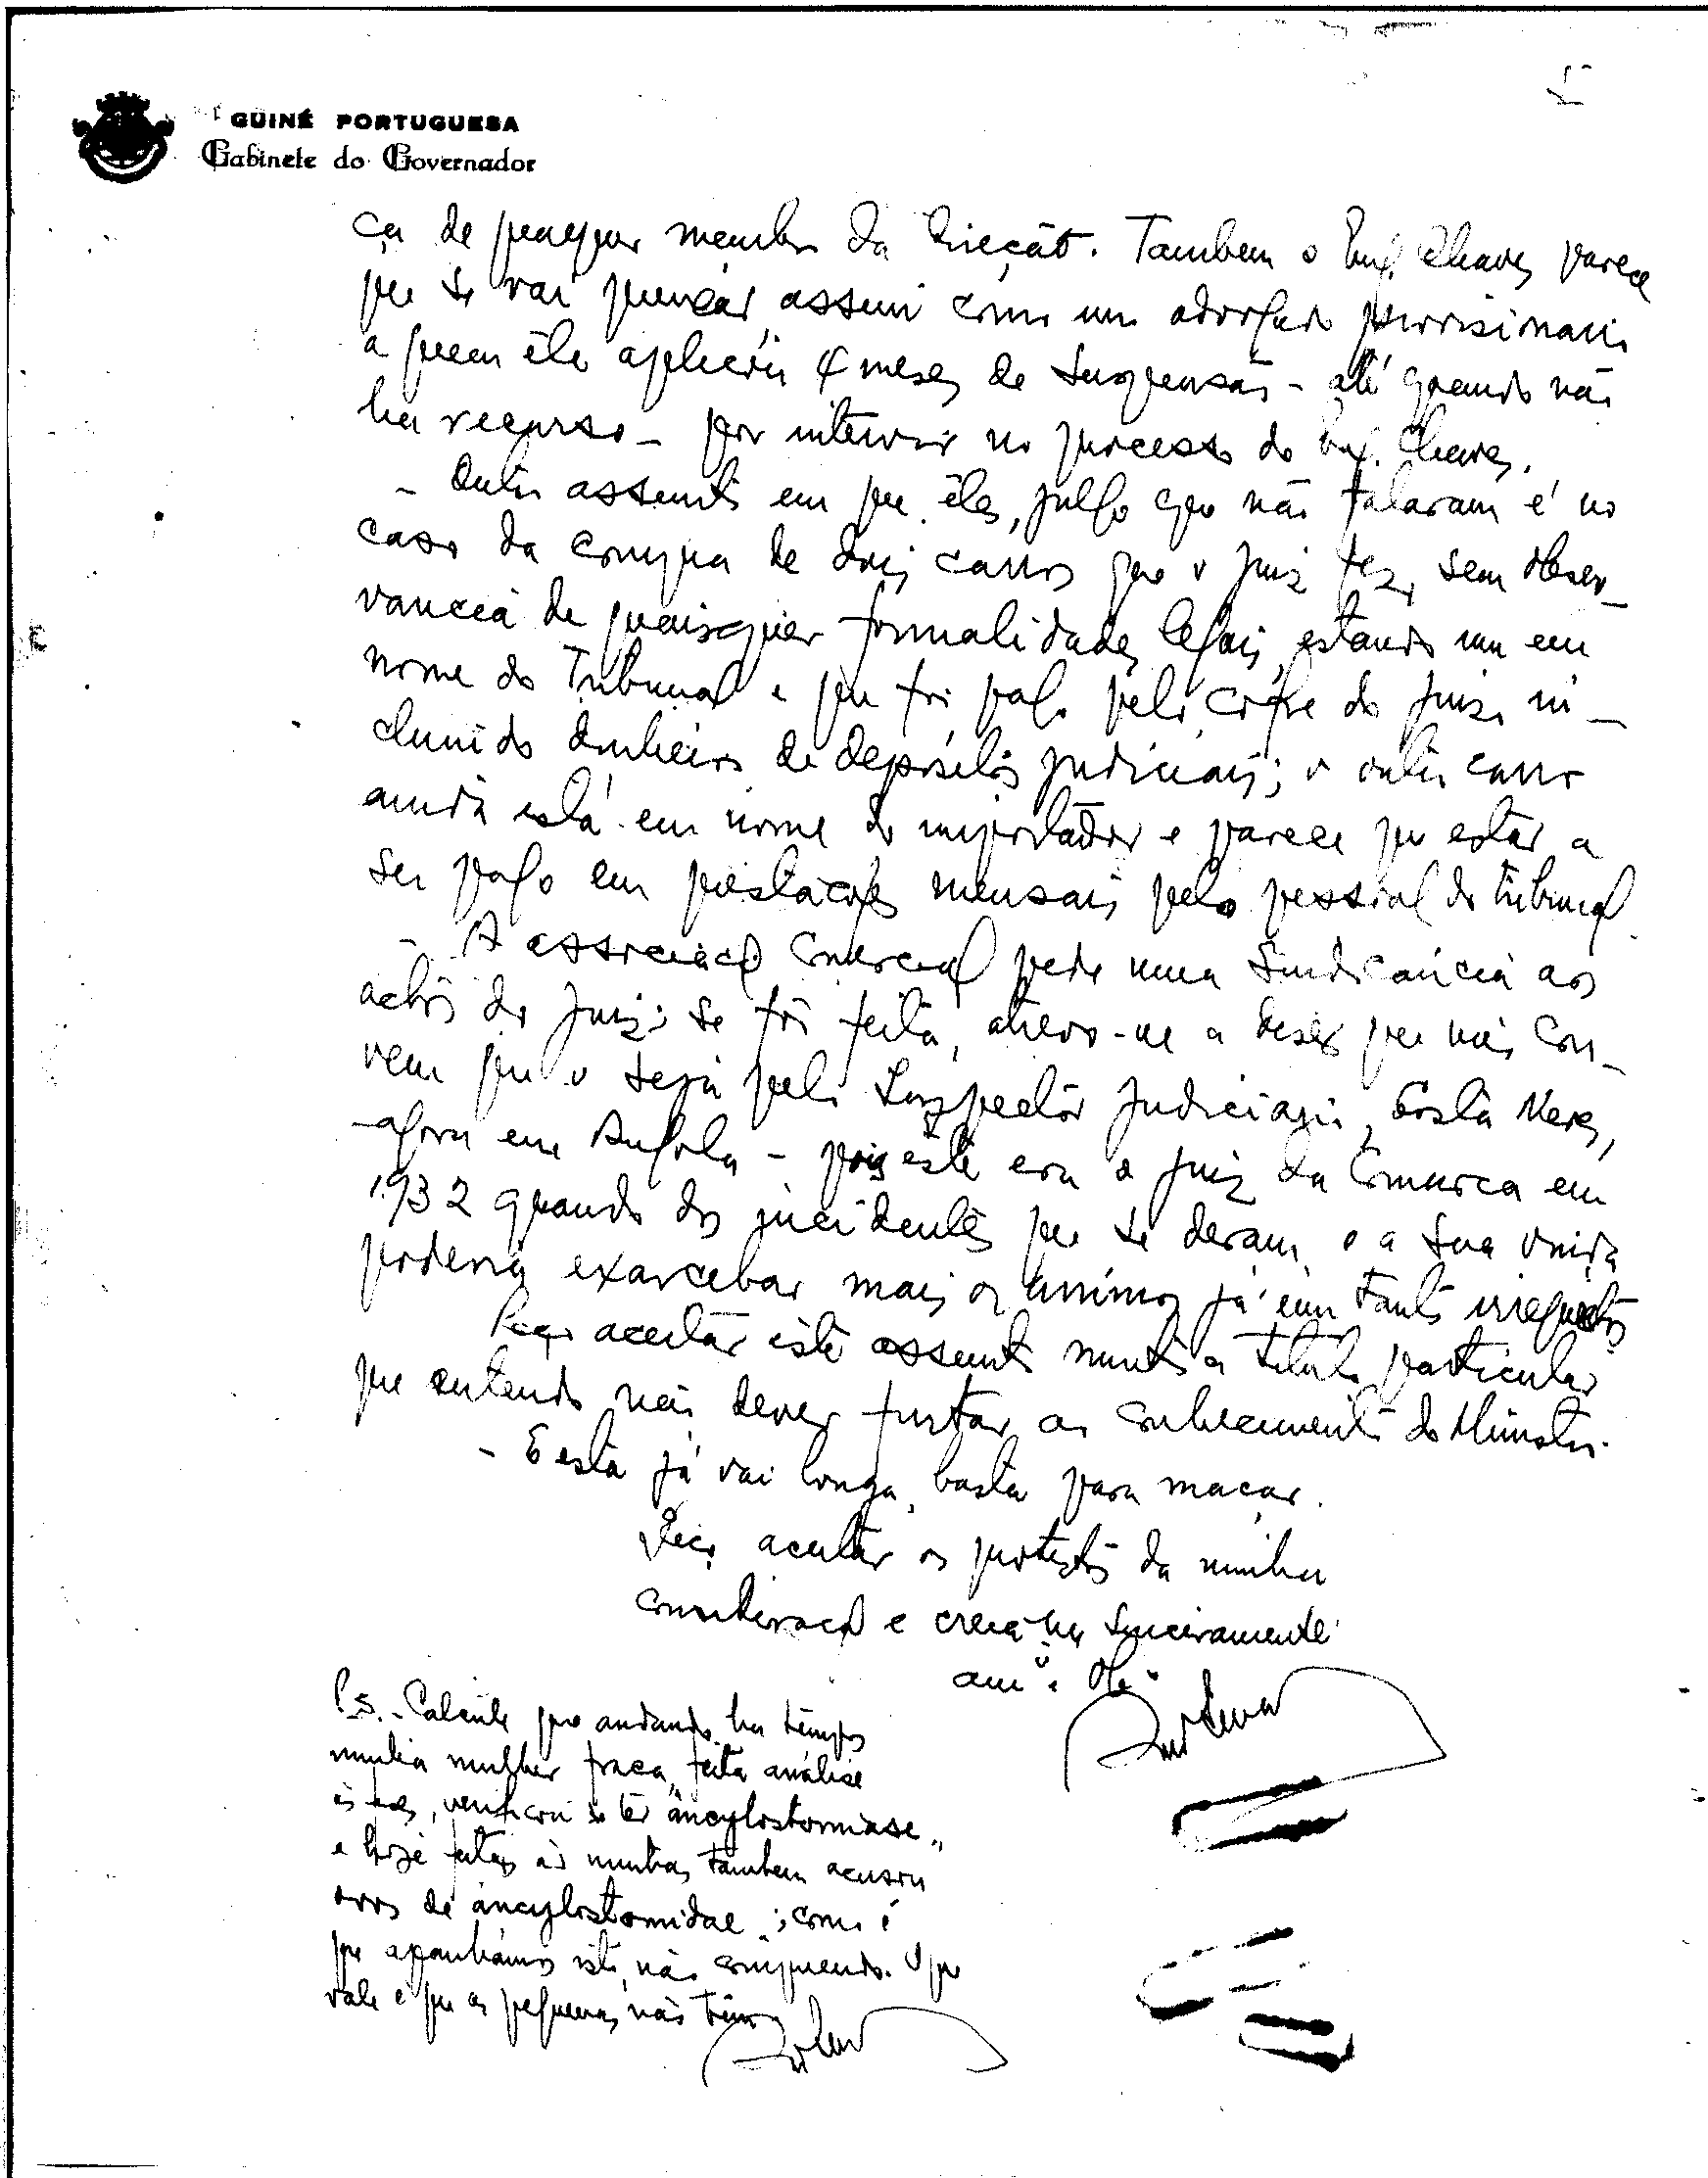 GUINÉ PORTUGUESA
Gabinete do Governador
ça de qualquer membro da Direcção. Tambem o Eng. Chaves parece
que se vai queixar, assim como um advogado provisionario
a quem êle aplicou 4 meses de suspensão - até quando não
ha recurso - por intervir no processo do Eng. Chaves.
- Outro assunto em que êles, julgo que não falaram é no
caso da compra de dois carros que o juiz fez, sem obser-
vancia de quaisquer formalidades legais, estando um em
nome do Tribunal e que foi pago pelo cofre do juizo in-
cluindo dinheiro de depositos judiciais; o outro carro
ainda está em nome do importador e parece que estar a
ser pago em prestações mensais pelo pessoal do tribunal.
- A associação Comercial pede uma sindicancia aos
actos do juiz; se fôr feita, atrevo-me a dizer que não con-
vem que o seja pelo Inspector Judiciario, Costa Neves,
- agora em Angola - pois êste era o juiz da Comarca em
1932 quando dos incidentes que se deram e a sua vinda
poderia exarcebar mais os ânimos já um tanto irrequietos
Peço aceitar êste assunto muito a titulo particular
que entendo não dever furtar ao conhecimento do Ministro.
- E esta já vai longa, basta para maçar.
Peço aceitar os protestos da minha
consideração e creia-me sinceramente
amº e Obº
P.S. - Calcule que andando ha tempos
minha mulher fraca, feita análise
ás fezes, verificou se ter "ancylostomiase"
e hoje feitas ás minhas, tambem acusou
ovos de "ancylostomidae"; como é
que apanhámos isto, não comprendo. O que
vale é que as pequenas não têm